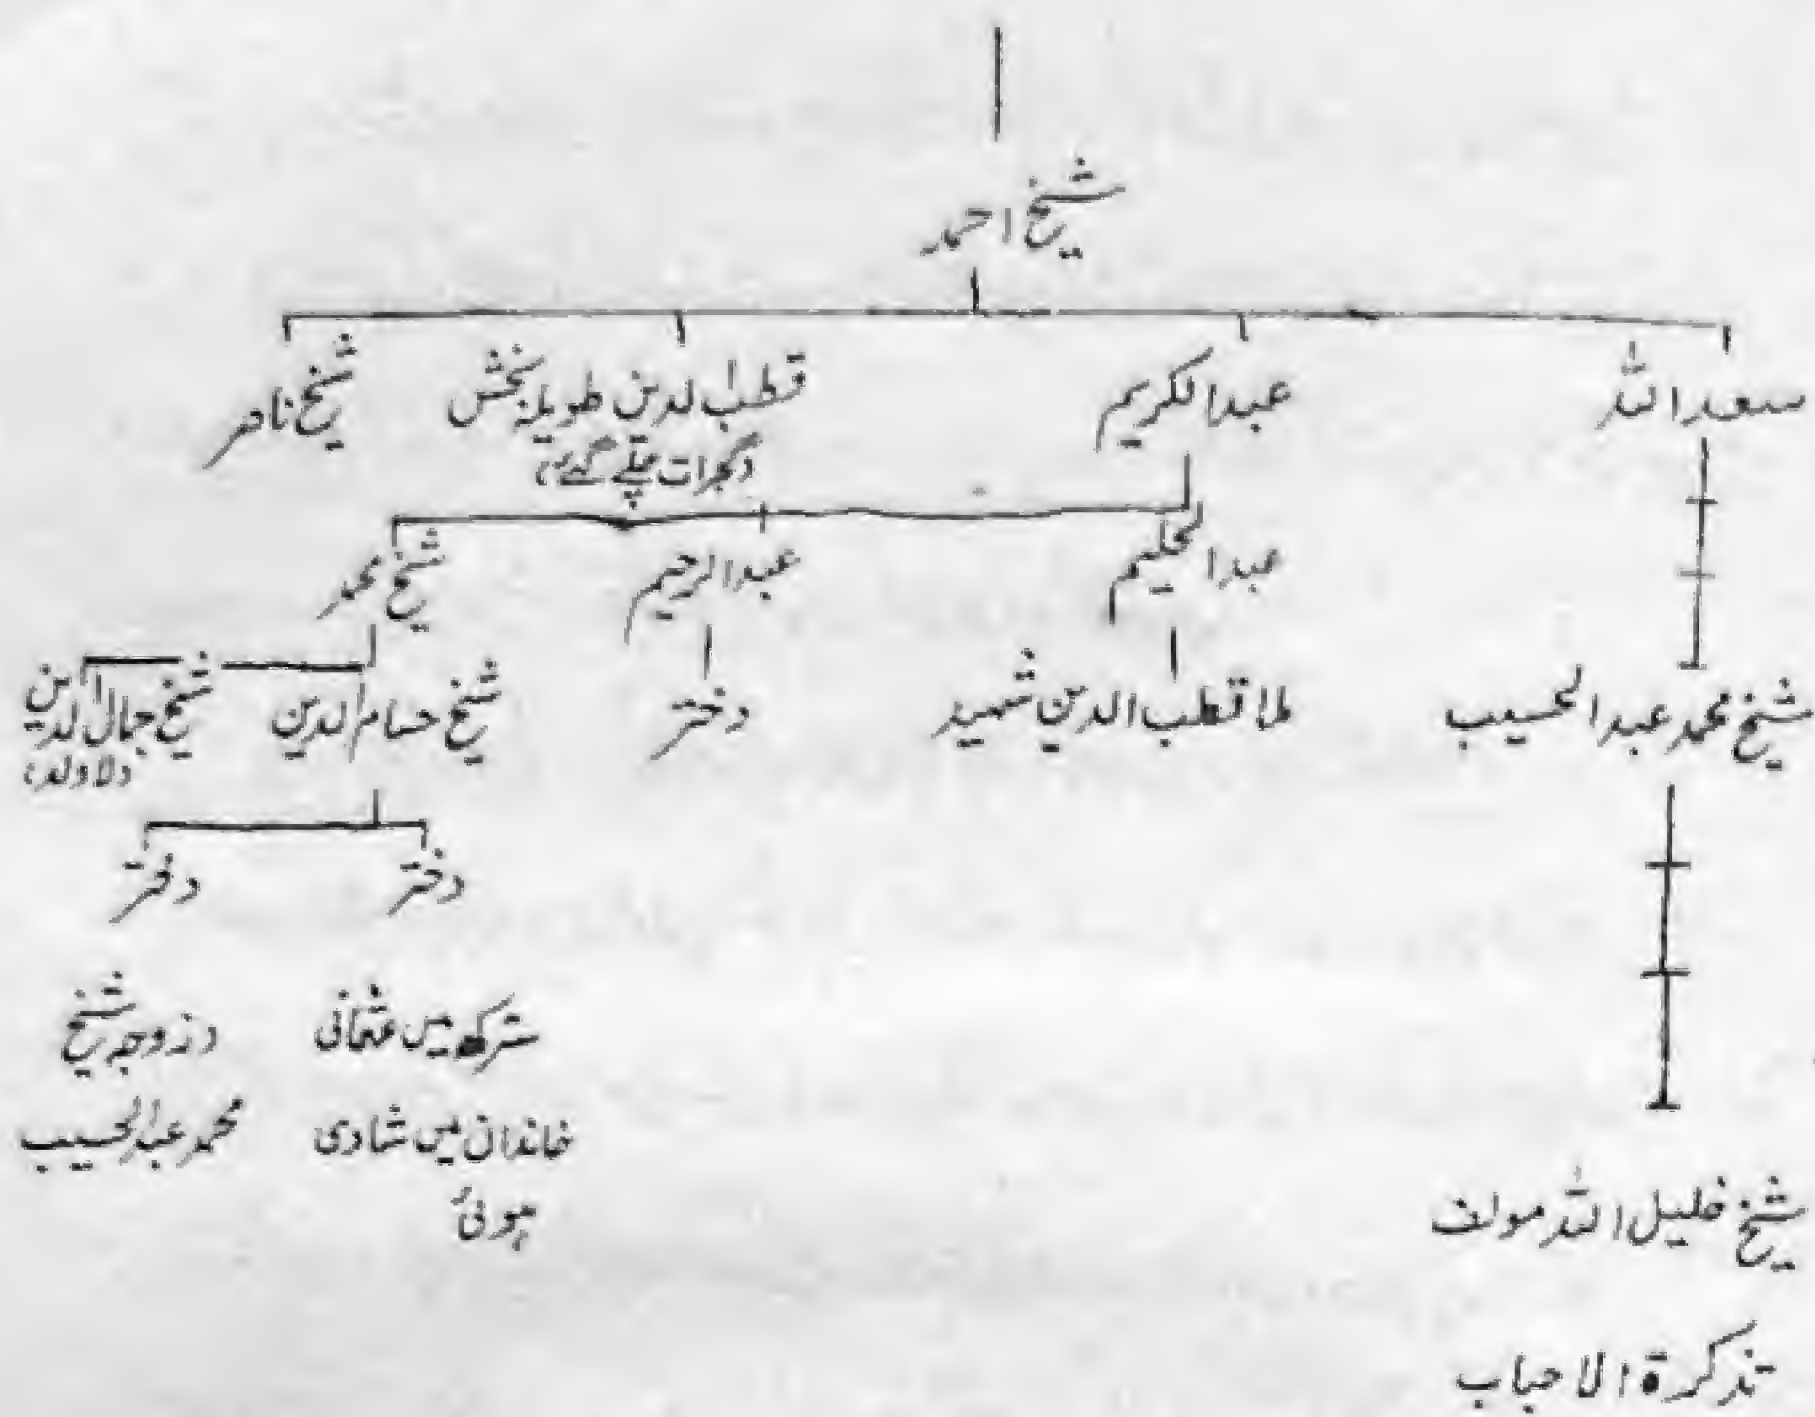 شیخ احمد
سعد اللہ
عبدالکریم
قطب الدین طویلہ بخش
(گجرات چلے گئے)
شیخ ناصر
عبدالحلیم
عبدالرحیم
شیخ محمد
شیخ محمد عبدالحسیب
ملا قطب الدین شہید
دختر
شیخ حسام الدین
شیخ جمال الدین
(لاولد)
دختر
دختر
سترکھ میں عثمانی
خاندان میں شادی
ہوئی
(زوجہ شیخ
محمد عبدالحسیب
شیخ خلیل اللہ مولف
تذکرۃ الاحباب